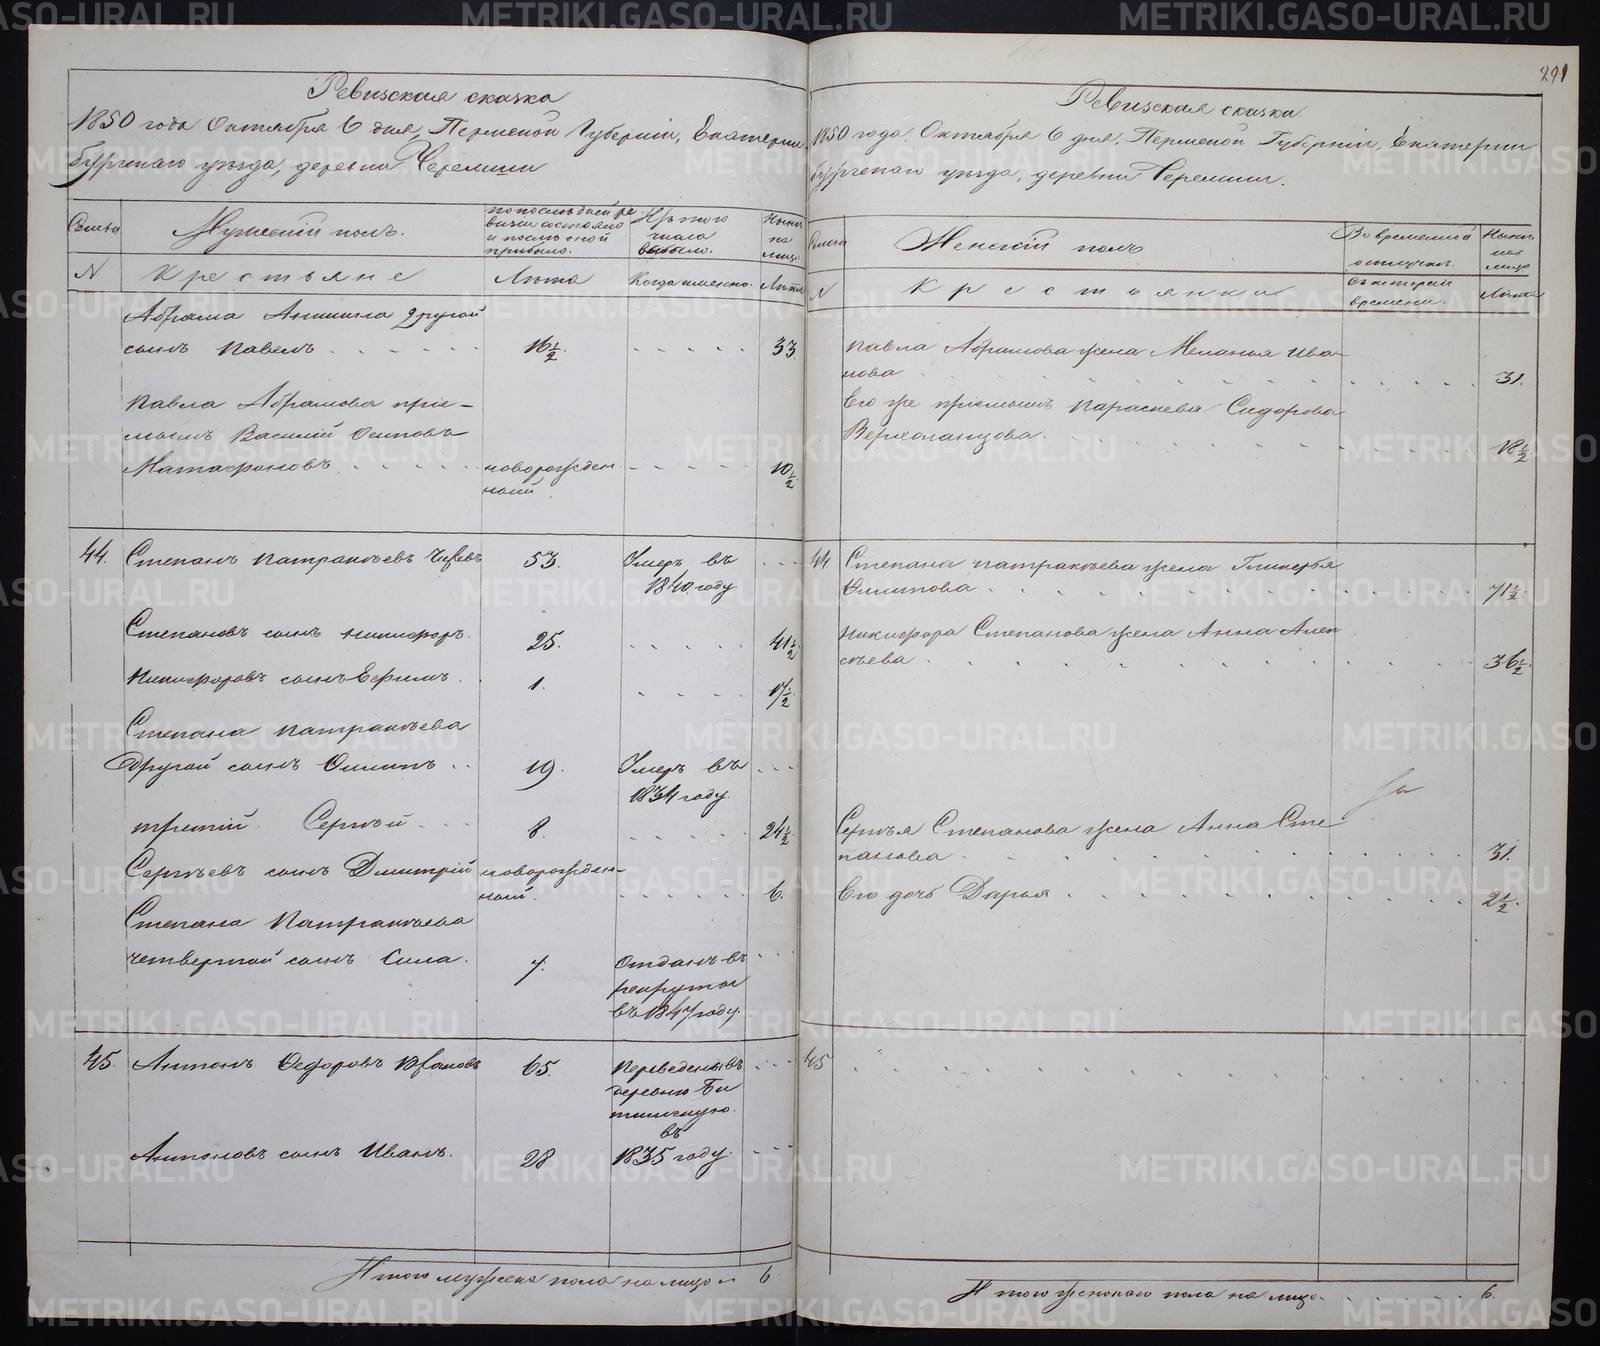 Ревизская сказка
1850 года Октября 6 дня, Пермской Губернии, Екатерин
бургскаго уезда, деревни Черемши
Семьи
Мужеский полъ.
по последней ре
визии состояло
и после оной
прибыло.
Изъ того
числа
выбыло.
Ныне
на
лицо
N
Крестьяне
Лета
Когда именно.
Лета
Абрама Другой
сынъ Павелъ
16 1/2.
33.
Павла Абрамова прие-
мышъ Василий Осиповъ
новорожден
ный
10 1/2
44. Степанъ Патракеевъ
53.
Умеръ въ
1840 году
Степановъ сынъ Никифоръ.
25.
41 1/2
Никифоровъ сынъ Ефимъ.
1.
17 1/2
Степана Патракеева
другой сынъ
19.
Умеръ въ
1834 году.
третий Сергей
8.
24 1/2
Сергеевъ сынъ Дмитрий
новорожден-
ный.
6.
Степана Патракеева
четвертой сынъ Сила.
7.
Отданъ въ
рекруты
въ 1847 году.
45. Антонъ Федоровъ
65.
Переведены въ
деревню
въ
Антоновъ сынъ Иванъ.
28
1835 году.
Итого мужеска пола на лицо 6
291
Ревизская сказка
1850 года Октября 6 дня, Пермской Губернии, Екатерин
бургскаго уезда, деревни Черемши.
Семьи
Женский полъ
Во временной
отлучке.
Ныне
на
лицо
N
Крестьянки
Съ котораго
времени.
Лета
Павла Абрамова жена Меланья Ива-
нова
31.
Его же приемышъ Параскева Сидорова
18 1/2
44
Степана Патракеева жена Гликерья
71 1/2.
Никифора Степанова жена Анна Алек
сеева
36 1/2.
Сергея Степанова жена Анна Сте
панова
31.
Его дочь Дарья
2 1/2.
45
Итого женскаго пола на лицо. 6.
METRIKI.GASO-URAL.RU